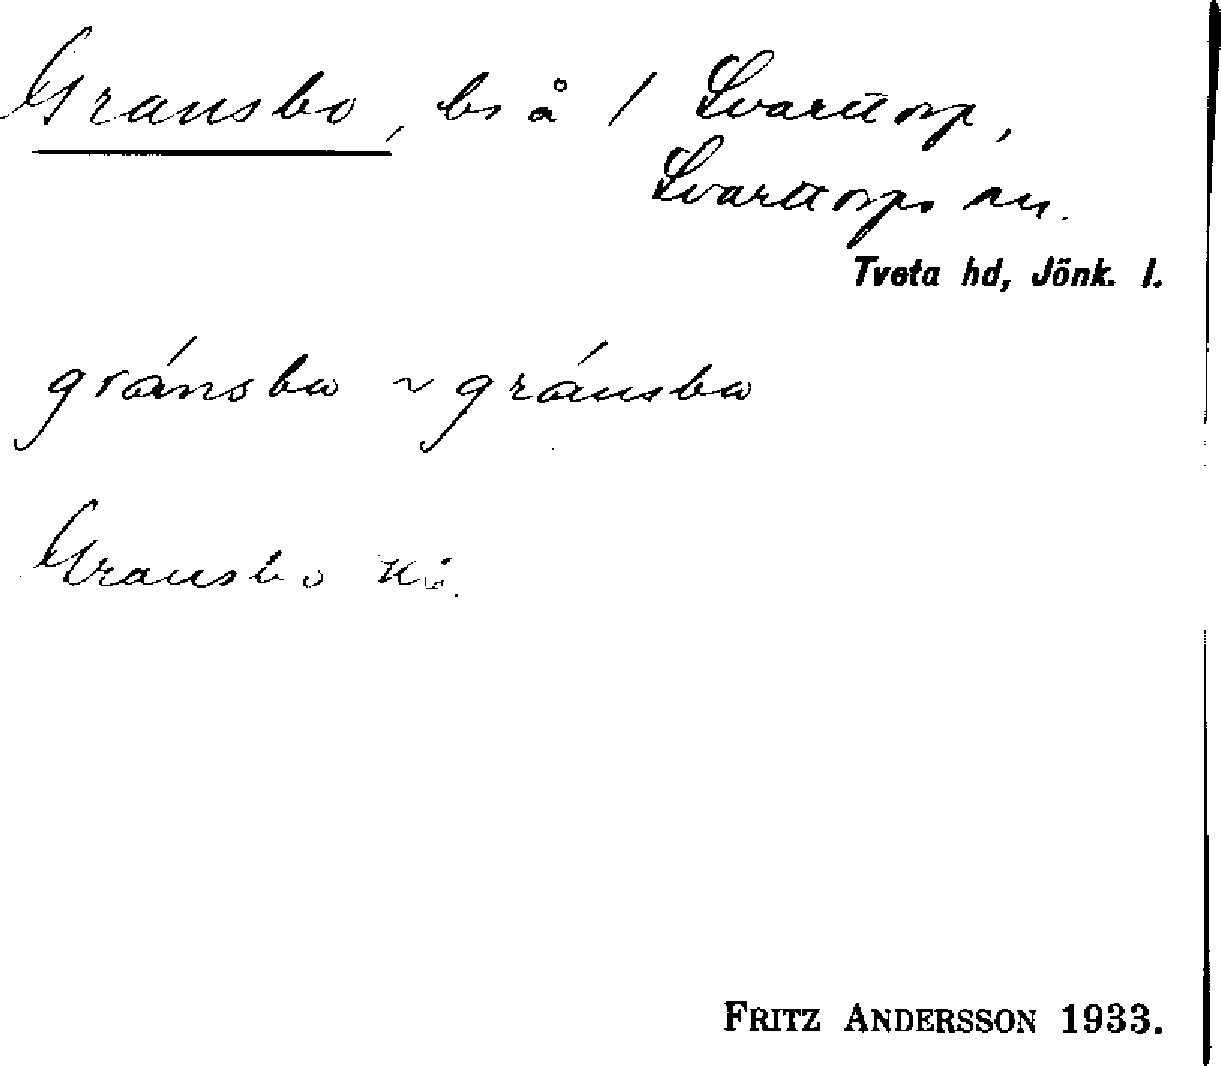 Gransbo, bs å / Svarttorp,
Svarttorps sn.
Tveta hd, Jönk. l.
gránsbω ~ gránsbω
Gransbo
FRITZ ANDERSSON 1933.